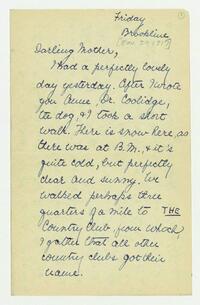 Friday
1
Brookline
Darling Mother,
I had a perfectly lovely
day yesterday. After I wrote
you Anne, Dr. Coolidge,
the dog, & I took a short
walk. There is snow here, as
there was at B.M., & it's
quite cold, but perfectly
clear and sunny. We
walked perhaps three
quarters of a mile to THE
Country Club, from which,
I gather that all other
country clubs got their
name.